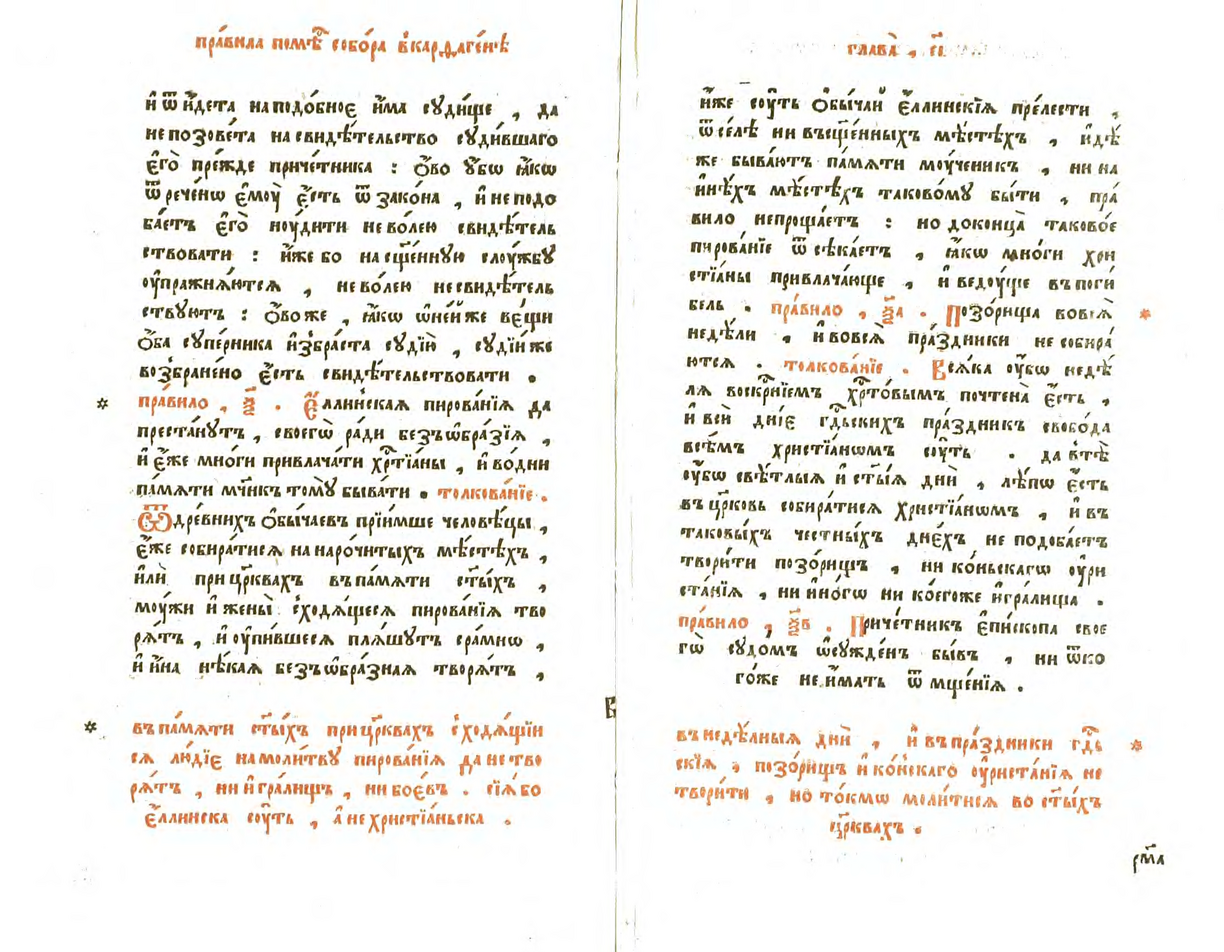 пра́вила помѣ́ст собо́ра в̾карѳаге́нѣ
и҆ ѿи҆́дета наподо́бное и҆́ма суди́ще , да
непозове́та насвидѣ́тельство суди́вшаго
є҆го̀ пре́жде приче́тника : ѻ҆́во у҆́бѡ ꙗ҆́кѡ
ѿрече́нѡ є҆моу̀ є҆́сть ѿзако́на , и҆ неподо
ба́етъ є҆го̀ ноу́дити нево́лею свидѣ́тель
ствовати : и҆́же бо насщ҃е́нную слоу́жбу
оу҆пражнѧ́ютсѧ , нево́лею несвидѣ́тель
ствуютъ : ѻ҆́воже , ꙗ҆́кѡ ѡ҆не́й же ве́щи
ѻ҆́ба супе́рника и҆збра́ста судїю̀ , судїи́же
возбране́но є҆́сть свидѣ́тельствовати .
пра́вило , ѯ҃ . Є҆́ллинскаѧ пирова́нїѧ да
преста́нутъ , своегѡ̀ ра́ди безъѡбра́зїѧ ,
и҆ є҆́же мно́ги привлача́ти хрⷭ҇тїа́ны , и҆ во́дни
па́мѧти мч҃нкъ тому̀ быва́ти . толкова́нїе .
Ѿдре́внихъ ѻ҆бы́чаевъ прїи́мше человѣ́цы ,
є҆́же собира́тисѧ нанаро́читыхъ мѣ́стѣхъ ,
и҆лѝ прицр҃квахъ впа́мѧти ст҃ы́хъ ,
моу́жи и҆ жены̀ сходѧ́щесѧ пирова́нїѧ тво
рѧ́тъ , и҆ оу҆пи́вшесѧ плѧ́шутъ сра́мнѡ ,
и҆ и҆́на нѣ́каѧ безъѡбра́знаѧ творѧ́тъ ,
въпа́мѧти ст҃ы́хъ прицр҃квахъ сходѧ́щїи
сѧ лю́дїе намоли́тву пирова́нїѧ да не тво
рѧ́тъ , ни и҆гра́лищъ , ни боє́въ . сїѧ́ бо
є҆́ллинска соу́ть , а҆ не христїа́ньска .
глава̀ , є҃і .
и҆́же соу́ть ѻ҆бы́чаи є҆́ллинскїѧ пре́лести ,
ѿселѣ̀ ни въсщ҃е́нныхъ мѣ́стѣхъ , и҆дѣ́
же быва́ютъ па́мѧти моу́ченикъ , ни на
и҆нѣ́хъ мѣ́стѣхъ таково́му бы́ти , пра́
вило непроща́етъ : но доконца̀ таково́е
пирова́нїе ѿсѣка́етъ , ꙗ҆́кѡ мно́ги хри
стїа́ны привлача́юще , и҆ веду́ще въпоги́
бель . пра́вило , ѯ҃а . Позо́рища вовсѧ̀
недѣ́ли , и҆ вовсѧ̀ пра́здники не собира́
ютсѧ . толкова́нїе . Всѧ́ка оу҆́бѡ недѣ́
лѧ воскр҇нїемъ хрⷭ҇то́вымъ почтена̀ є҆́сть ,
и҆ всѝ дні́е гдⷭ҇ьскихъ пра́здникъ свобо́да
всѣ́мъ христїа́нѡмъ соу́ть . да втѣ̀
оу҆́бѡ свѣ́тлыѧ и҆ ст҃ы́ѧ дни̑ , лѣ́пѡ є҆́сть
въцр҃ковь собира́тисѧ христїа́нѡмъ , и҆ въ
таковы́хъ че́стныхъ дне́хъ не подоба́етъ
твори́ти позо́рищъ , ни ко́ньскагѡ оу҆ри
ста́нїѧ , ни и҆но́гѡ ни кое́гоже и҆гра́лища .
пра́вило , ѯ҃в . Приче́тникъ є҆пи́скопа свое
гѡ̀ судо́мъ ѡ҆сужде́нъ бы́въ , ни ѿко
го́же не и҆́мать ѿмще́нїѧ .
въ недѣ́лныѧ дни̑ , и҆ въпра́здники гдⷭ҇ь
скїѧ , позо́рищъ и҆ ко́нскаго оу҆риста́нїѧ не
твори́ти , но то́кмѡ моли́тисѧ во ст҃ы́хъ
цр҃квахъ .
рм҃а